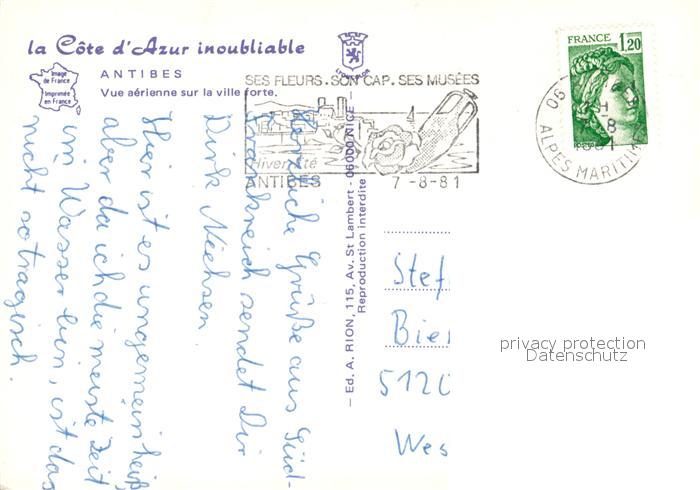 la Côte d'Azur inoubliable
ANTIBES
Vue aérienne sur la ville forte.
Image
de France
Imprimée
en France
SES FLEURS. SON CAP. SES MUSÉES
Hiver Eté
ANTIBES 7-8-81
FRANCE
1,20
06
ALPES MARITIM
Herzliche Grüße aus Süd-
frankreich sendet Dir
Dirk
Hier ist es ungemein heiß,
aber da ich die meiste Zeit
im Wasser bin, ist das
nicht so tragisch.
— Ed. A. RION, 115, Av. St Lambert - 06000 NICE —
Reproduction interdite
Stef
Bie
512
Wes
privacy protection
Datenschutz